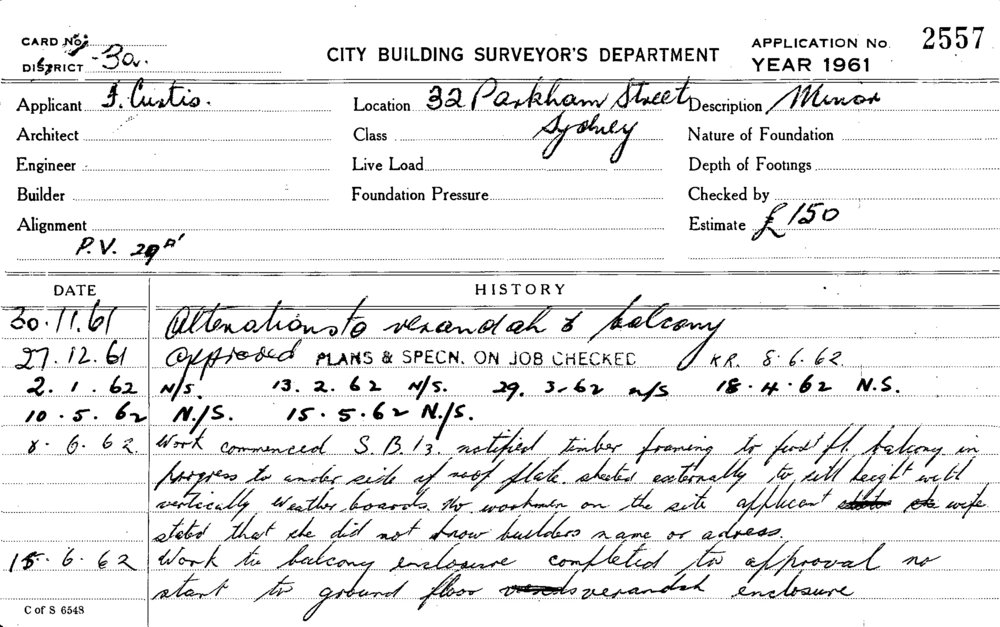 CARD No.
DISTRICT 3a.
CITY BUILDING SURVEYOR'S DEPARTMENT
APPLICATION No. 2557
YEAR 1961
Applicant F. Curtis.
Location 32 Parkham Street
Sydney
Description Minor
Architect
Class
Nature of Foundation
Engineer
Live Load
Depth of Footings
Builder
Foundation Pressure
Checked by
Alignment
Estimate £150
P.V.
DATE HISTORY
30.11.61 Alterations to verandah & balcony
27.12.61 Approved PLANS & SPECN. ON JOB CHECKED KR. 8.6.62.
2.1.62 N/S. 13.2.62 N/S. 29.3-62 N/S 18.4.62 N.S.
10.5.62 N./S. 15.5.62 N./S.
8.6.62. Work commenced S.B.13. notified timber framing to first fl. balcony in
progress to under side of roof plate. sheeted externally to sill height with
vertically Weather boards. No workmen on the site applicant wife
stated that she did not know builders name or adress.
15.6.62 Work to balcony enclosure completed to approval no
start to ground floor verandah enclosure
C of S 6548